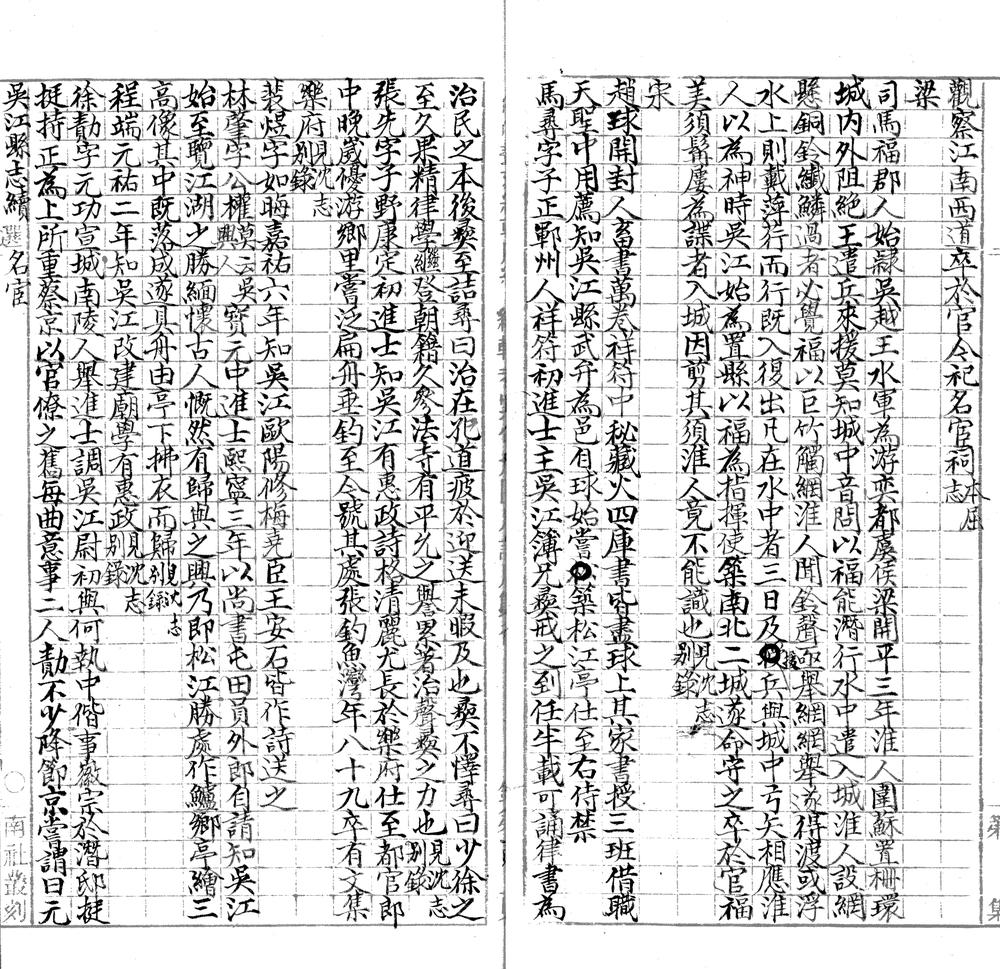 觀察江南西道卒於官今祀名宦祠本屈志
梁
司馬福郡人始隸吳越王水軍為游奕都虞侯梁開平三年淮人圍蘇置柵環
城內外阻絕王遣兵來援莫知城中音問以福能潛行水中遣入城淮人設網
懸銅鈴纖鱗過者必覺福以巨竹觸網淮人聞鈴聲亟舉網網舉遂得渡或浮
水上則戴萍荇而行既入復出凡在水中者三日及援兵與城中弓矢相應淮
人以為神時吳江始為置縣以福為指揮使築南北二城遂命守之卒於官福
美須髯屢為諜者入城因剪其須淮人竟不能識也見沈志別錄
宋
趙球開封人畜書萬卷祥符中秘藏火四庫書皆盡球上其家書授三班借職
天聖中用薦知吳江縣武弁為邑自球始嘗築松江亭仕至右侍禁
馬尋字子正鄆州人祥符初進士主吳江簿兄彜戒之到任半載可誦律書為
治民之本後彜至詰尋曰治在孔道疲於迎送未暇及也彜不懌尋曰少徐之
至久果精律學繼登朝籍久參法寺有平允之譽累著治聲彜之力也見沈志別錄
張先字子野康定初進士知吳江有惠政詩格清麗尤長於樂府仕至都官郎
中晚歲優游鄉里嘗泛扁舟垂釣至今號其處張釣魚灣年八十九卒有文集
樂府見沈志別錄
裴煜字如晦嘉祐六年知吳江歐陽修梅堯臣王安石皆作詩送之
林肇字公權莫云吳興人寶元中進士熙寧三年以尚書屯田員外郎自請知吳江
始至覽江湖之勝緬懷古人慨然有歸與之興乃即松江勝處作鱸鄉亭繪三
高像其中既落成遂具舟由亭下拂衣而歸見沈志別錄
程端元祐二年知吳江改建廟學有惠政見沈志別錄
徐勣字元功宣城南陵人舉進士調吳江尉初與何執中偕事徽宗於潛邸挺
挺持正為上所重蔡京以官僚之舊每曲意事二人勣不少降節京嘗謂曰元
吳江縣志續 選 名宦
南社叢刻